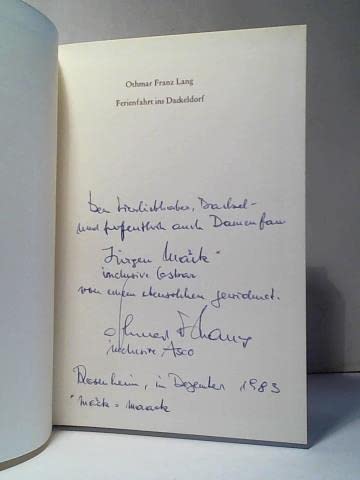 Othmar Franz Lang
Ferienfahrt ins Dackeldorf
Dem Tierliebhaber, Dackel-
und hoffentlich auch Damenfan
Jürgen Mačk*
inclusive
von einem ebensolchen gewidmet.
Othmar F Lang
inclusive Asco
Rosenheim, im Dezember 1983
*Mačk = Maack